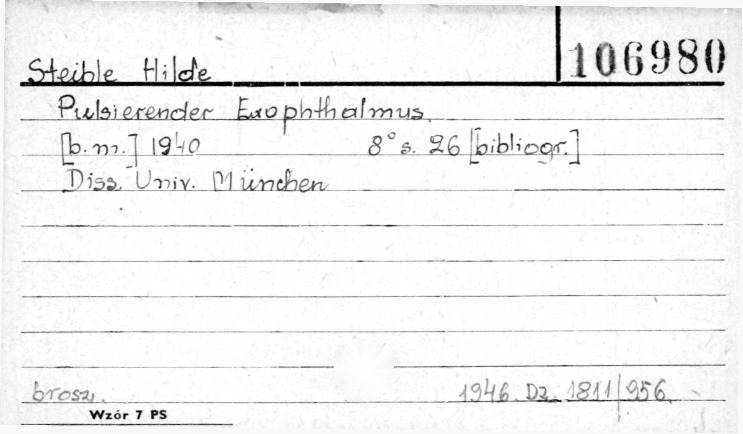 106980
Steible Hilde
Pulsierender Exophthalmus.
[b. m.] 1940 8° s. 26 [bibliogr.]
Diss. Univ. München
brosz. 1946. Dz. 1811/956.
Wzór 7 PS